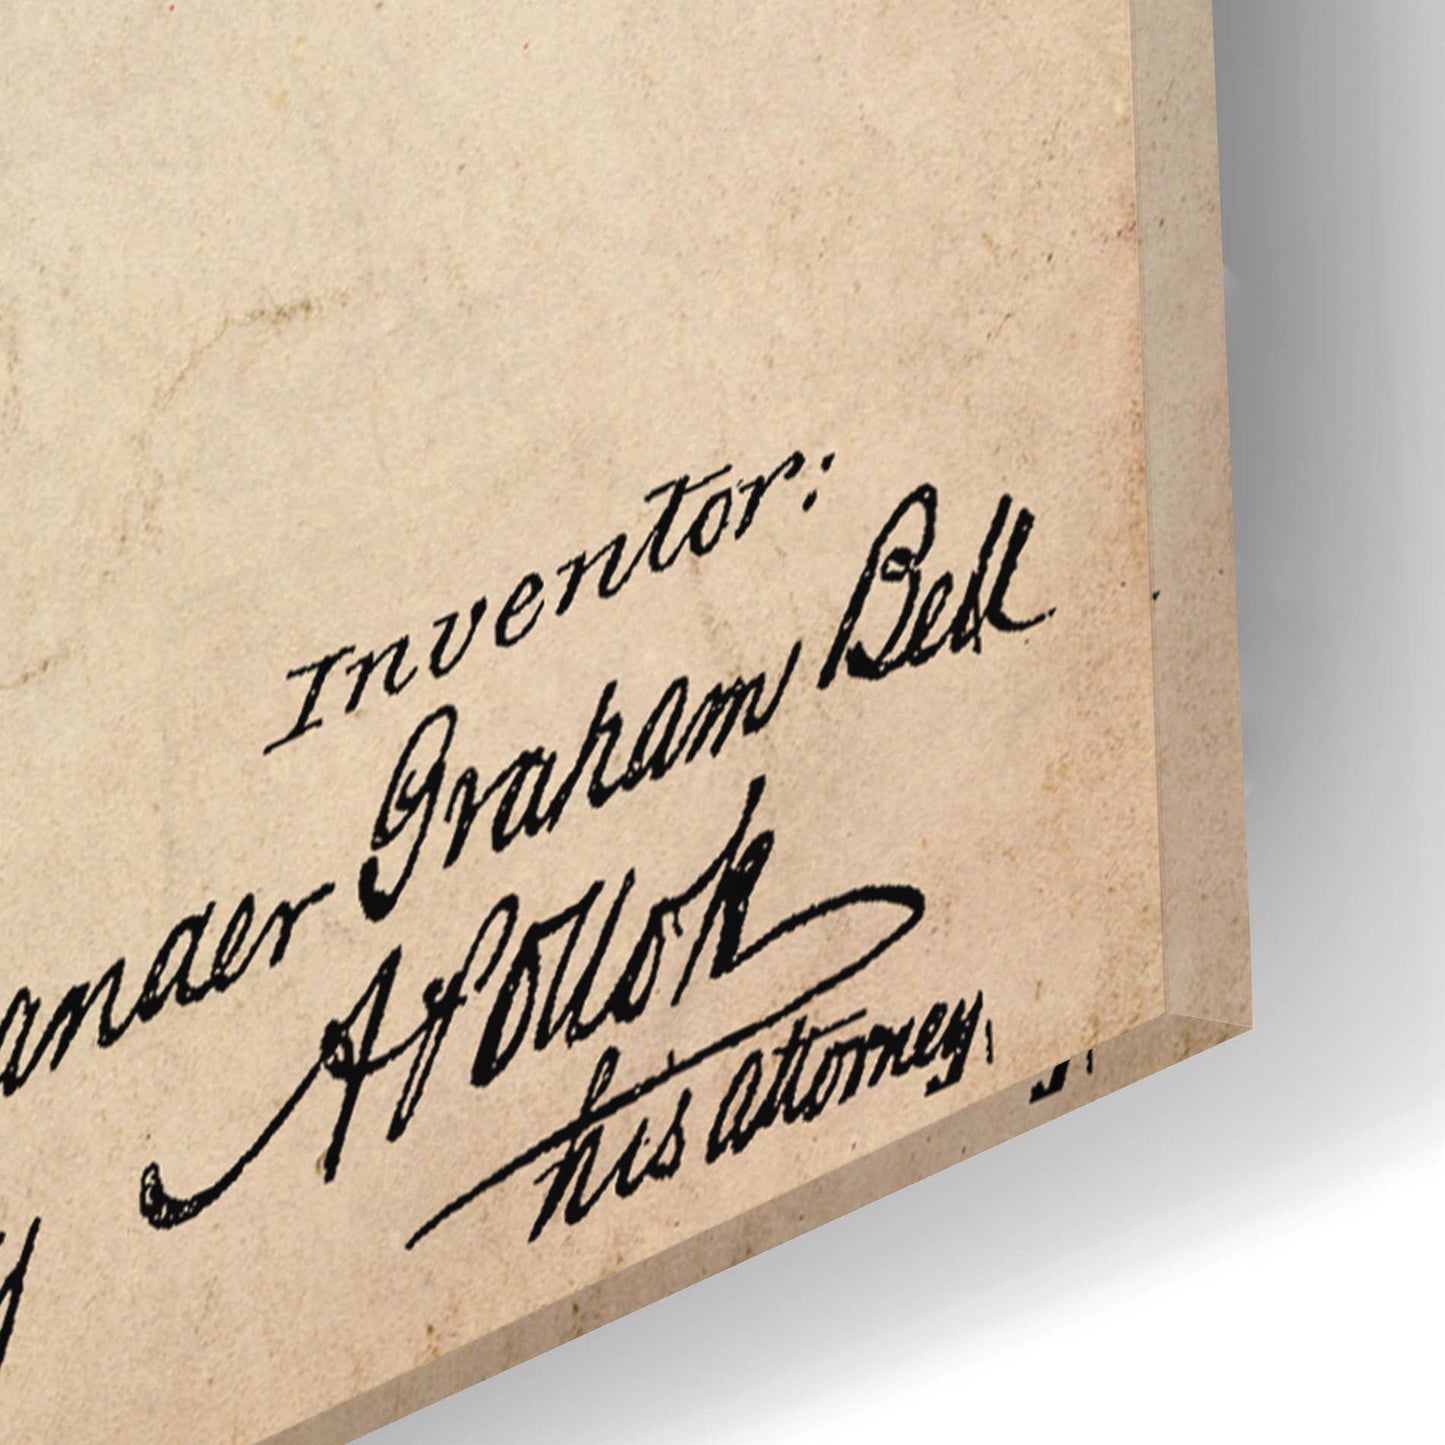 Inventor:
ander Graham Bell
A Pollok
his attorney,
y